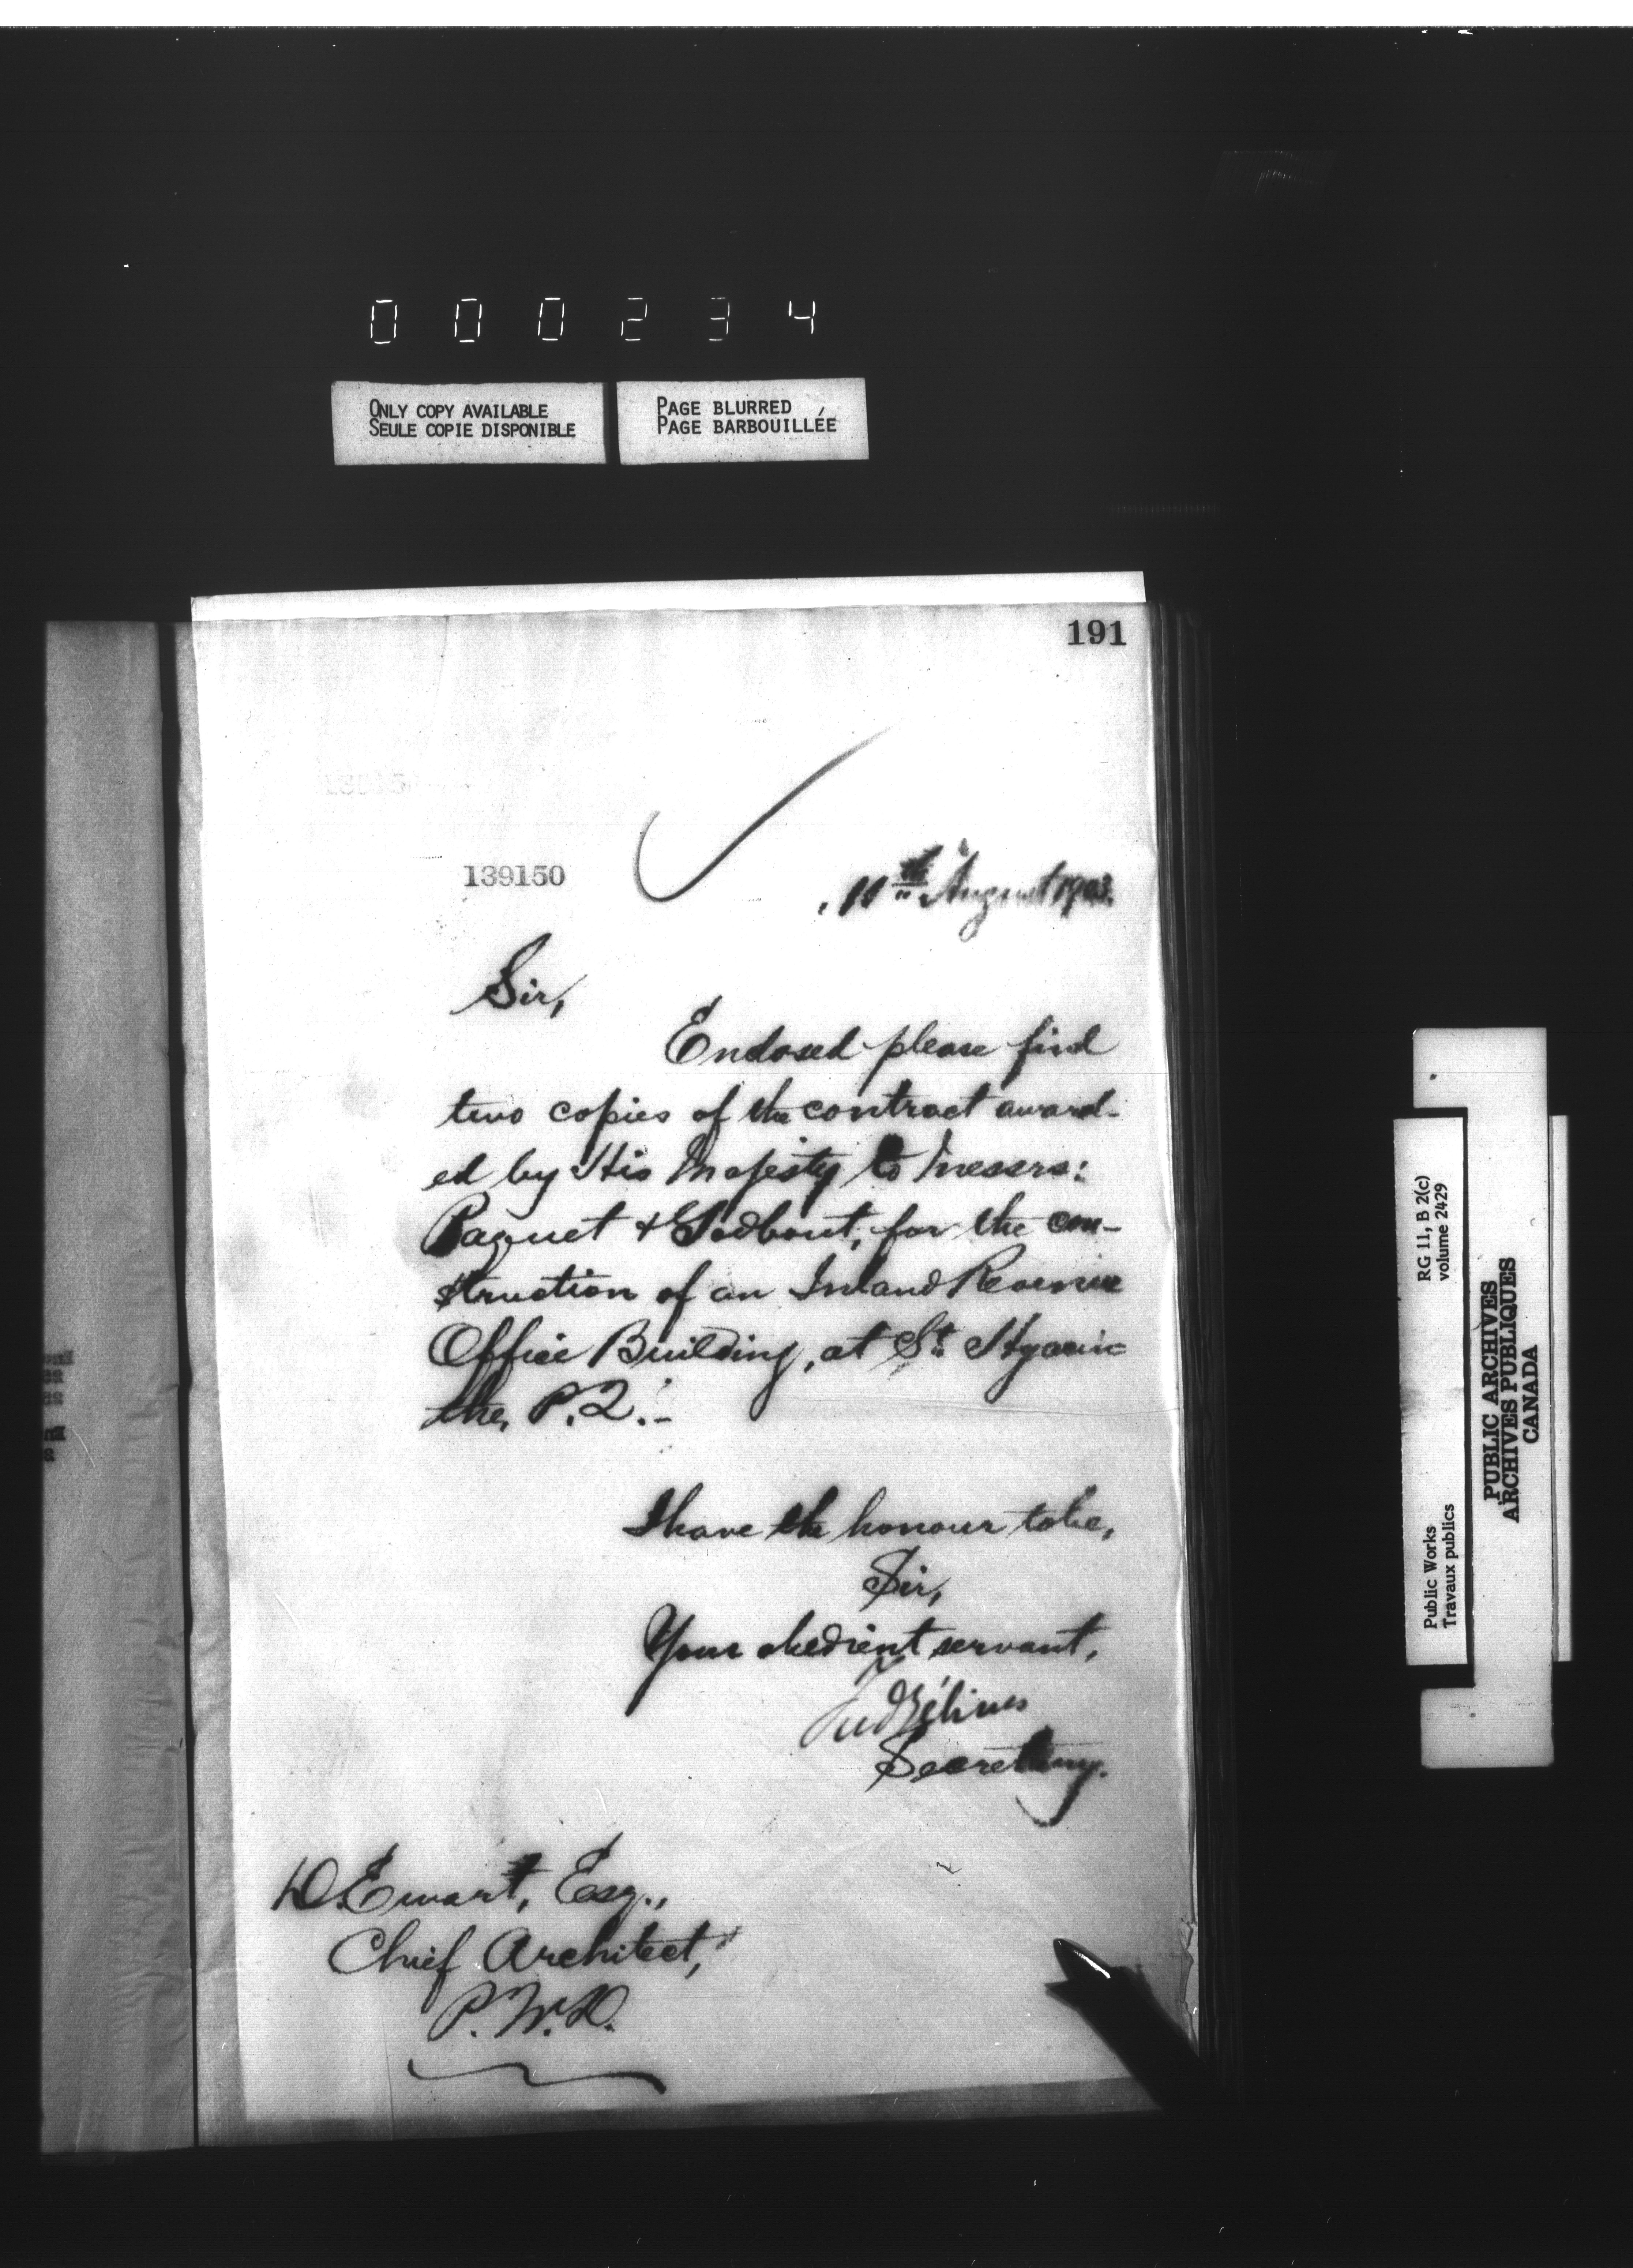 000234
ONLY COPY AVAILABLE
SEULE COPIE DISPONIBLE
PAGE BLURRED
PAGE BARBOUILLÉE
191
139150
11th August 1903.
Sir,
Enclosed please find
two copies of the contract award-
ed by His Majesty to Messrs:
Paquet & Godbout, for the con-
struction of an Inland Revenue
Office Building, at St. Hyacin
the, P.Q.-
I have the honour to be,
Sir,
Your obedient servant,
Fred Gélinas
Secretary.
D. Ewart, Esq.,
Chief Architect,
P.W.D.
Public Works
Travaux publics
RG 11, B 2(c)
volume 2429
PUBLIC ARCHIVES
ARCHIVES PUBLIQUES
CANADA